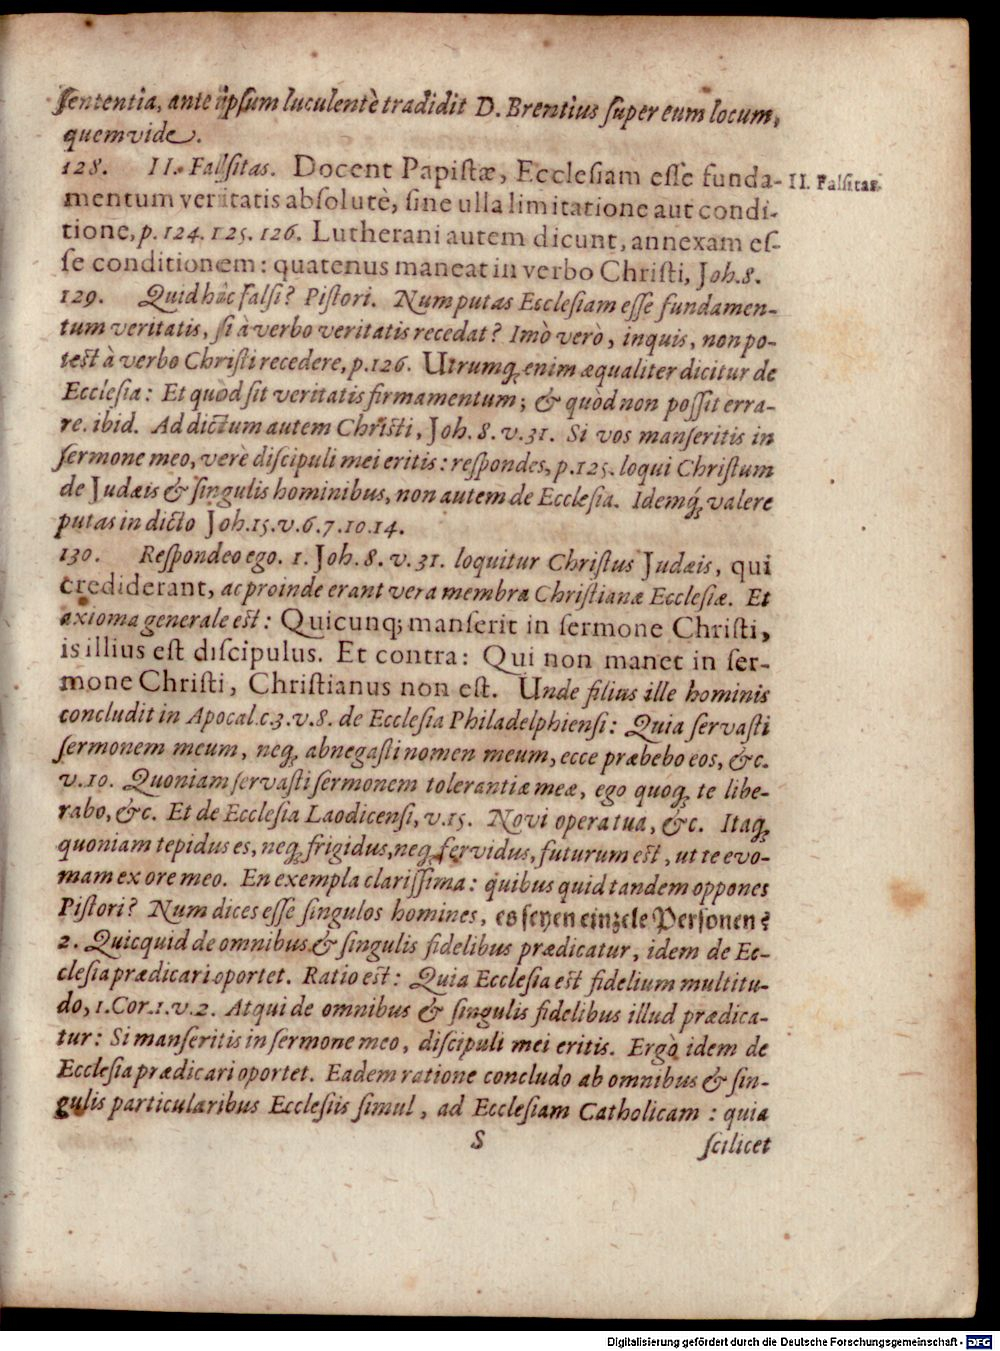 sententia, ante ipsum luculentè tradidit D. Brentius super eum locum,
quem vide.
128. II. Falsitas. Docent Papistæ, Ecclesiam esse funda-
II. Falsitas.
mentum veritatis absolutè, sine ulla limitatione aut condi-
tione, p. 124. 125. 126. Lutherani autem dicunt, annexam es-
se conditionem: quatenus maneat in verbo Christi, Joh. 8.
129. Quid hîc falsi? Pistori. Num putas Ecclesiam esse fundamen-
tum veritatis, si à verbo veritatis recedat? Imò verò, inquis, non po-
test à verbo Christi recedere, p. 126. Utrumq; enim æqualiter dicitur de
Ecclesia: Et quòd sit veritatis firmamentum; & quòd non possit erra-
re. ibid. Ad dictum autem Christi, Joh. 8. v. 31. Si vos manseritis in
sermone meo, verè discipuli mei eritis: respondes, p. 125. loqui Christum
de Judæis & singulis hominibus, non autem de Ecclesia. Idemq́; valere
putas in dicto Joh. 15. v. 6. 7. 10. 14.
130. Respondeo ego. 1. Joh. 8. v. 31. loquitur Christus Judæis, qui
crediderant, ac proinde erant vera membra Christianæ Ecclesiæ. Et
axioma generale est: Quicunq; manserit in sermone Christi,
is illius est discipulus. Et contra: Qui non manet in ser-
mone Christi, Christianus non est. Unde filius ille hominis
concludit in Apocal. c. 3. v. 8. de Ecclesia Philadelphiensi: Quia servasti
sermonem meum, neq; abnegasti nomen meum, ecce præbebo eos, &c.
v. 10. Quoniam servasti sermonem tolerantiæ meæ, ego quoq; te libe-
rabo, &c. Et de Ecclesia Laodicensi, v. 15. Novi opera tua, &c. Itaq;
quoniam tepidus es, neq; frigidus, neq; fervidus, futurum est, ut te evo-
mam ex ore meo. En exempla clarissima: quibus quid tandem oppones
Pistori? Num dices esse singulos homines, es seyen einzele Personen?
2. Quicquid de omnibus & singulis fidelibus prædicatur, idem de Ec-
clesia prædicari oportet. Ratio est: Quia Ecclesia est fidelium multitu-
do, 1. Cor. 1. v. 2. Atqui de omnibus & singulis fidelibus illud prædica-
tur: Si manseritis in sermone meo, discipuli mei eritis. Ergò idem de
Ecclesia prædicari oportet. Eadem ratione concludo ab omnibus & sin-
gulis particularibus Ecclesiis simul, ad Ecclesiam Catholicam: quia
S
scilicet
Digitalisierung gefördert durch die Deutsche Forschungsgemeinschaft - DFG